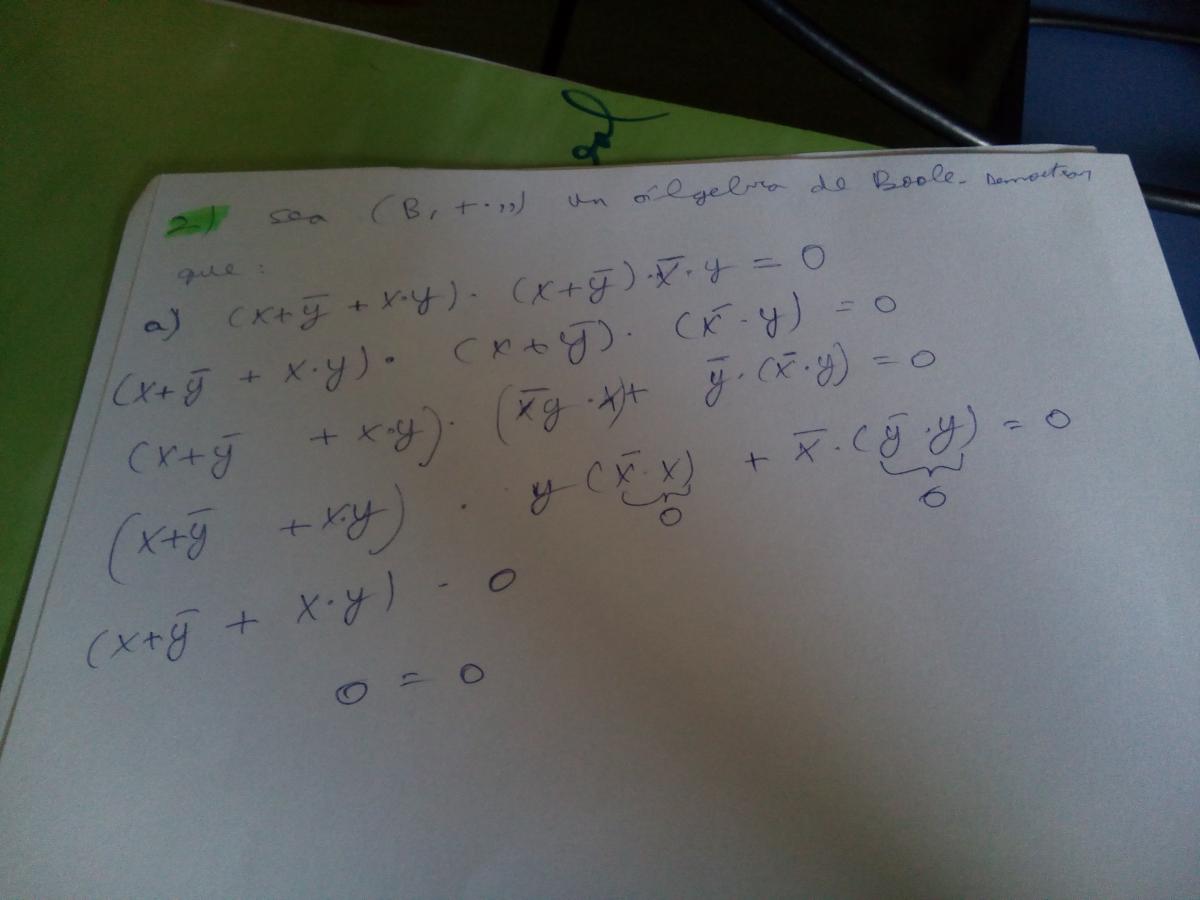 2) Sea (B, +·,,) un álgebra de Boole. Demostrar
que:
a) (x+ȳ + x·y)· (x+ȳ)·x̄·y = 0
(x+ȳ + x·y)· (x+ȳ)· (x̄·y) = 0
(x+ȳ + x·y)· (x̄y·x)+ ȳ·(x̄·y) = 0
(x+ȳ + x·y) · y(x̄·x) + x̄·(ȳ·y) = 0
0 0
(x+ȳ + x·y) · 0
0 = 0